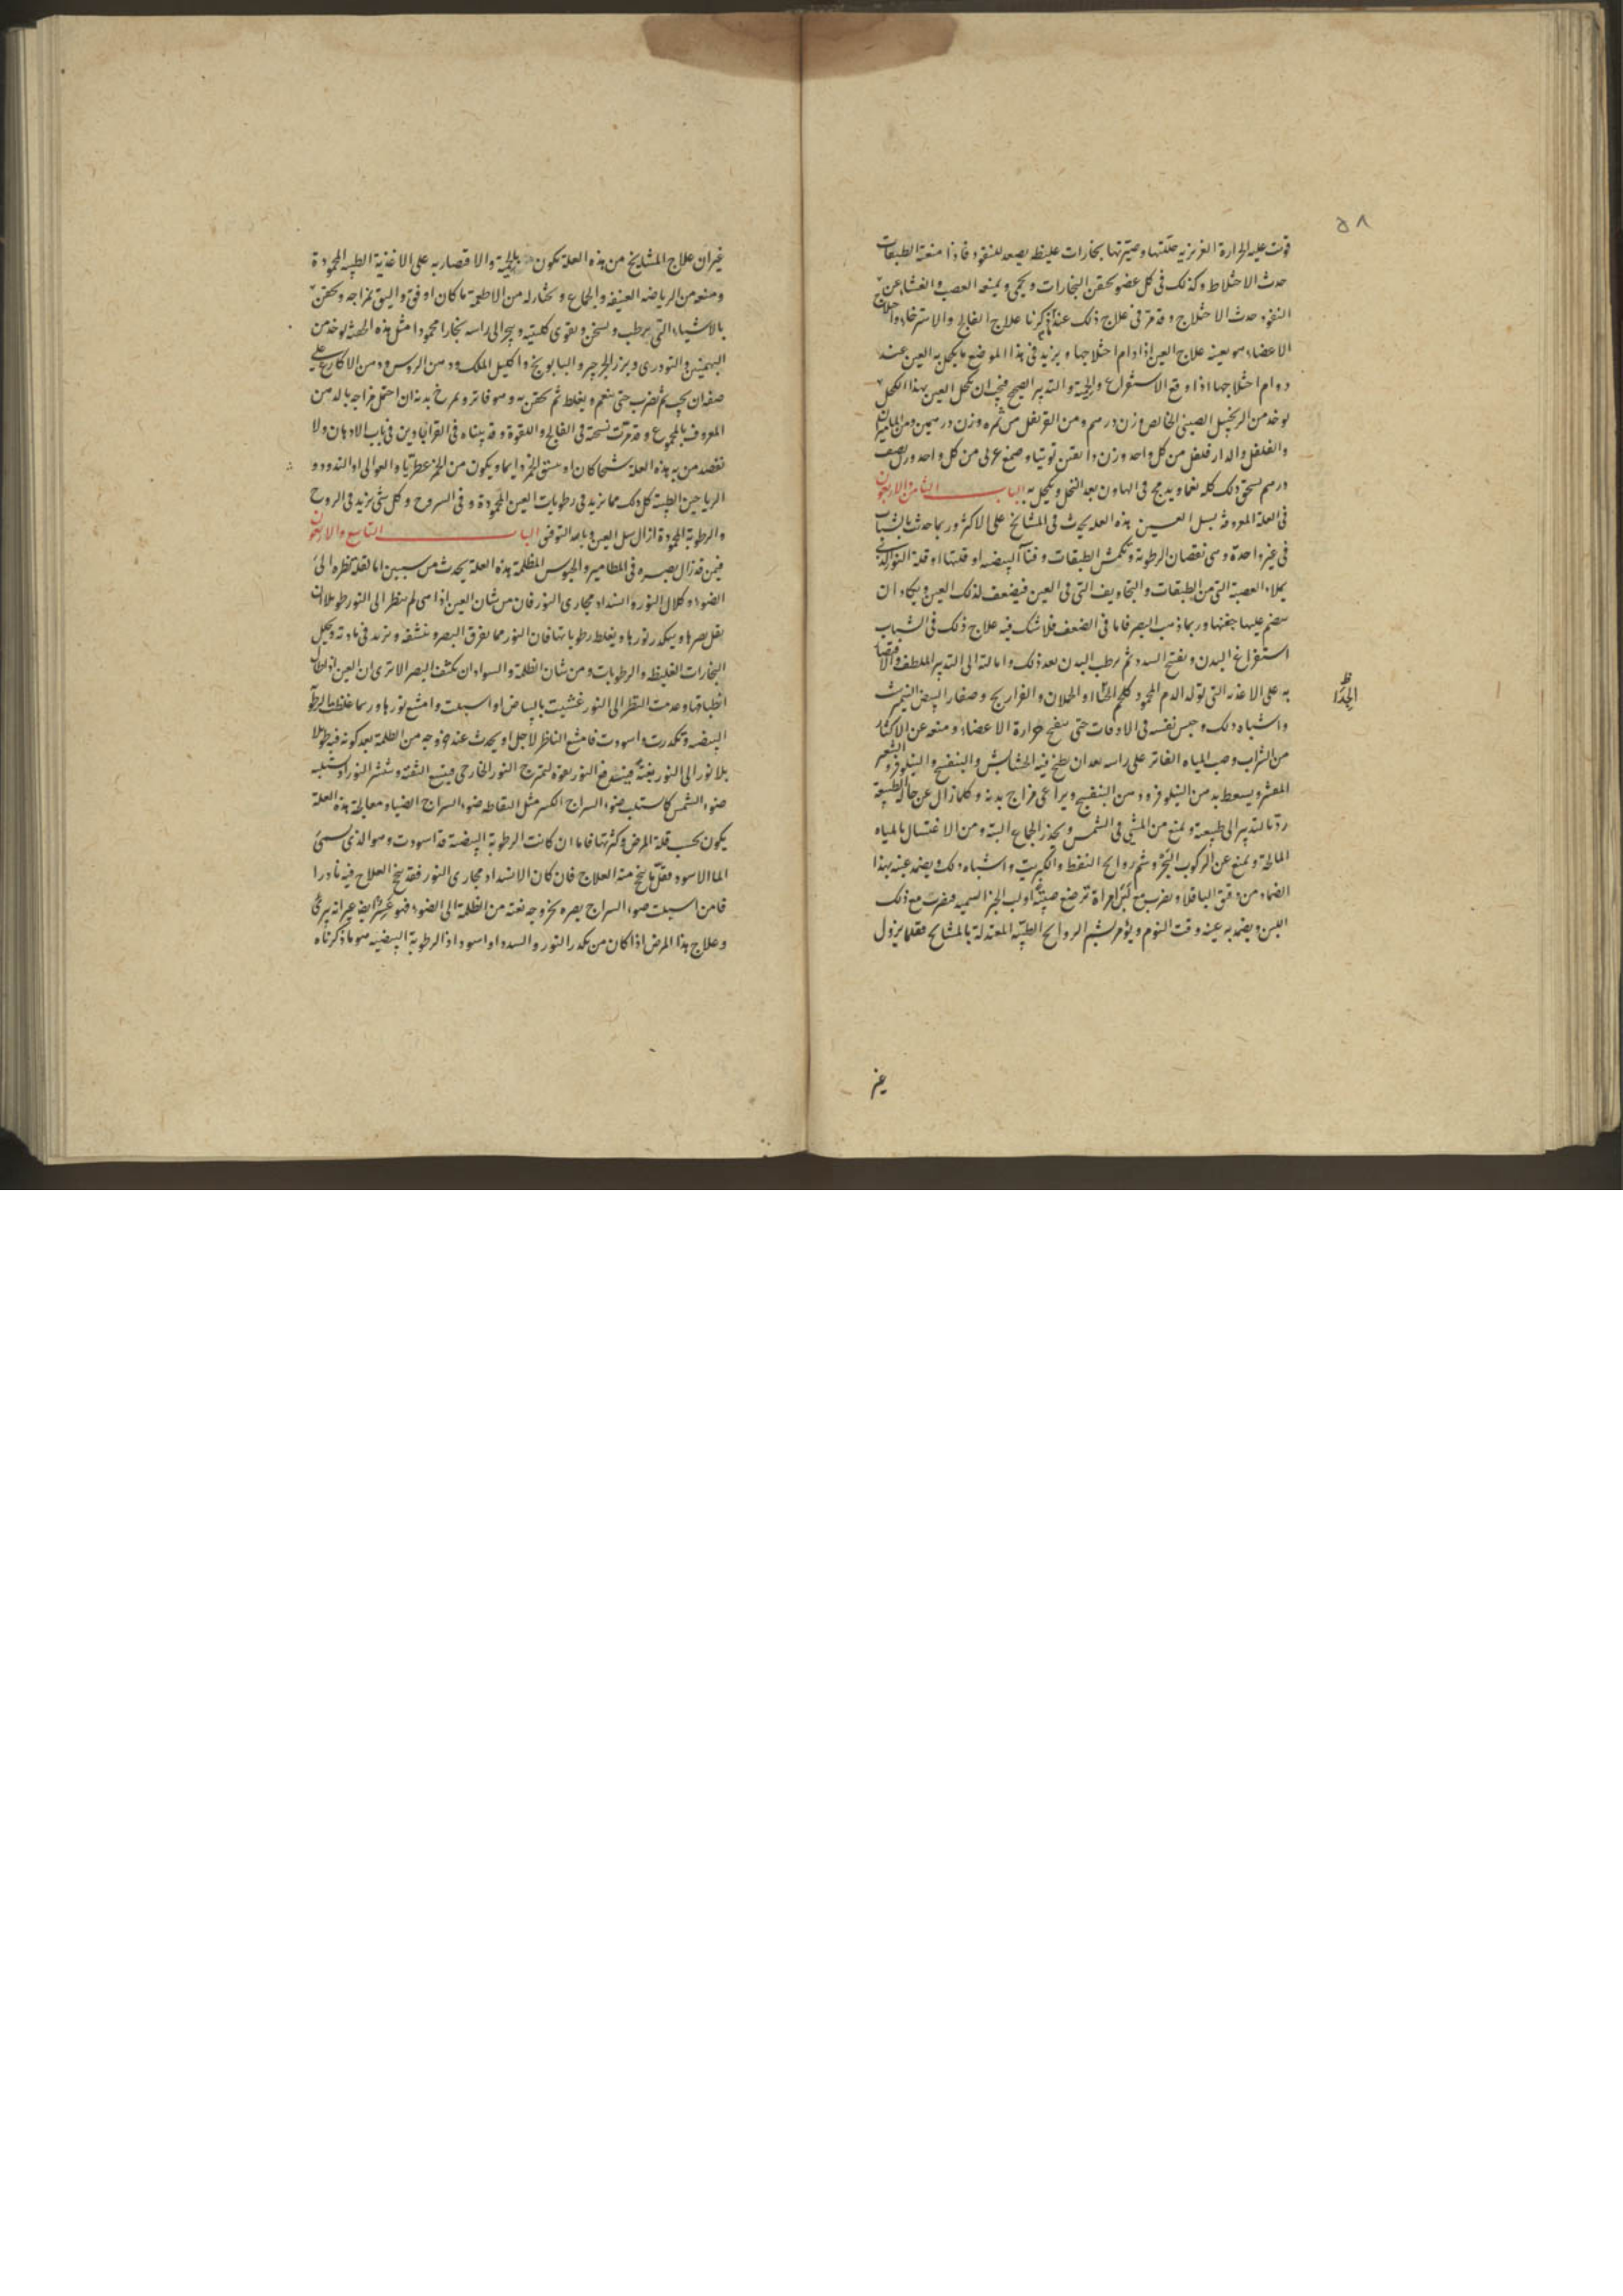 ٥٨
قوت عليه الحرارة الغريزيه حللتها وصيرتها بخارات غليظ يصعد للنفوذ فاذا منعته الطبقات
حدث الاختلاط وكذلك فى كل عضو تحقن البخارات ويحمى ويمنعه العصب والغشاء عن
النفوذ حدث الاختلاج وقد مر فى علاج ذلك عند ذكرنا علاج الفالج والاسترخاء واختلاج
الاعضاء هو بعينه علاج العين اذا دام اختلاجها ويزيد فى هذا الموضع ما يكحل به العين عند
دوام اختلاجها اذا وقع الاستفراغ والحمية والتدبير الصحيح فيجب ان يكحل العين بهذا الكحل
يوخذ من الزنجبيل الصينى الخالص وزن درهم ومن القرنفل من ثمره وزن درهمين ومن الماميران
والفلفل والدار فلفل من كل واحد وزن دانقين توتيا وصمغ عربى من كل واحد وزن نصف
درهم يسحق ذلك كله نعما ويدمج فى الهاون بعد النخل ويكحل به الباب الثامن والاربعون
فى العلة المعروفة بسل العين هذه العلة يحدث فى المشايخ على الاكثر وربما حدث بالشباب
فى عين واحدة وهى نقصان الرطوبة وتكمش الطبقات وفناء البيضيه او قلتها او قلة النور الذى
يملاء العصبة التى من الطبقات والتجاويف التى فى العين فيضعف لذلك العين ويكاد ان
ينضم عليها جفنها وربما ذهب البصر فاما فى الضعف فلا شك فيه علاج ذلك فى الشباب
استفراغ البدن ويفتح السدد ثم يرطب البدن بعد ذلك وامالته الى التدبير الملطف والاقتصار
به على الاغذيه التى تولد الدم المحمود كلحم الجدا والحملان والفراريج وصفار البيض النيمرشت
الجدا
واشباه ذلك وحبس نفسه فى الاوقات حتى ينفخ حرارة الاعضاء ومنعه عن الاكثار
من الشراب وصب المياه الفاتر على راسه بعد ان يطبخ فيه الخشخاش والبنفسج والنيلوفر والشعير
المقشر ويسعط بدهن النيلوفر ودهن البنفسج ويراعى مزاج بدنه وكلما زال عن حاله الطبيعة
رد بالتدبير الى طبيعته ويمنع من المشى فى الشمس ويحذر الجماع البته ومن الاغتسال بالمياه
المالحة ويمنع عن الركوب البحر وشم روايح النفط والكبريت واشباه ذلك ويضمد عينه بهذا
الضماد من دقيق الباقلا ويضرب مع لبن امراة ترضع صبية او لب الخبز السميد يضرب مع ذلك
اللبن ويضمد به عينه وقت النوم ويؤمر بشم الروايح الطيبة المعتدلة بالمشايخ فقلما يزول
غير
غير ان علاج المشايخ من هذه العلة يكون بالحمية والاقتصار به على الاغذية الطيبه المحمودة
ومنعه من الرياضه العنيفه والجماع ويختار له من الاطعمة ما كان اوفق واليق بمزاجه ويحقن
بالاشياء التى يرطب ويسخن ويقوى كليتيه ويبخر الى راسه بخارا محمودا مثل هذه الحقنة يوخذ من
البهمنين والتودرى وبزر الجرجير والبابونج واكليل الملك ودهن الروس ودهن الاكارع على
صفة ان يجب ثم يضرب حتى ينعم ويغلط ثم يحقن به وهو فاتر ويمرخ بدنه ان احتمل مزاجه بالدهن
المعروف بالمجموع وقد مرت نسخته فى الفالج واللقوة وقد بيناه فى القراباذين فى باب الادهان ولا
يفصد من به هذه العلة شيخا كان او يسقى الخمر دايما ويكون من الخمر عطريا والغوالى او الند و
الرياحين الطيبة كل ذلك مما يزيد فى رطوبات العين المحمودة وفى السروح وكل شى يزيد فى الروح
والرطوبة المحمودة ازال سل العين وبالله التوفيق الباب التاسع والاربعون
فيمن قد زال بصره فى المطامير والحبوس المظلمة هذه العلة يحدث من سببين اما لقلة نظره الى
الضوء وكلال النور وانسداد مجارى النور فان من شان العين اذا هى لم ينظر الى النور طويلا ان
يقل بصرها ويتكدر نورها ويغلط رطوباتها فان النور مما يفرق البصر وينشفه ويزيد فى مادته ويحلل
البخارات الغليظه والرطوبات ومن شان الظلمة والسواد ان يكثف البصر الا ترى ان العين اذا طال
انطباقها وعدمت النظر الى النور غشيت بالبياض او اسبلت وامتنع نورها وربما غلظت الرطوبة
البيضيه وتكدرت واسودت فامتنع الناظر لاجل او يحدث عند خروجه من الظلمة بعد كونه فيه طويلا
بلا نور الى النور بغتة فيندفع النور بقوة ليمتزج النور الخارجى فيتسع الثقبة وينتشر النور او يستلبه
ضوء الشمس كاستلب ضوء السراج الكبير مثل التقاطه ضوء السراج الضياء ومعالجة هذه العلة
يكون بحسب قلة المرض وكثرتها فاما ان كانت الرطوبة البيضية قد اسودت وهو الذى يسمى
الما الاسود فقل ما ينجح منه العلاج فان كان الانسداد مجارى النور فقد ينجح العلاج فيه نادرا
فاما من استلب ضوء السراج بصره بخروجه بغتة من الظلمة الى الضوء فهو عسر ايضا غير انه يبرئ
وعلاج هذا المرض اذا كان من تكدر النور والسدد او اسوداد الرطوبة البيضيه هو ما ذكرناه